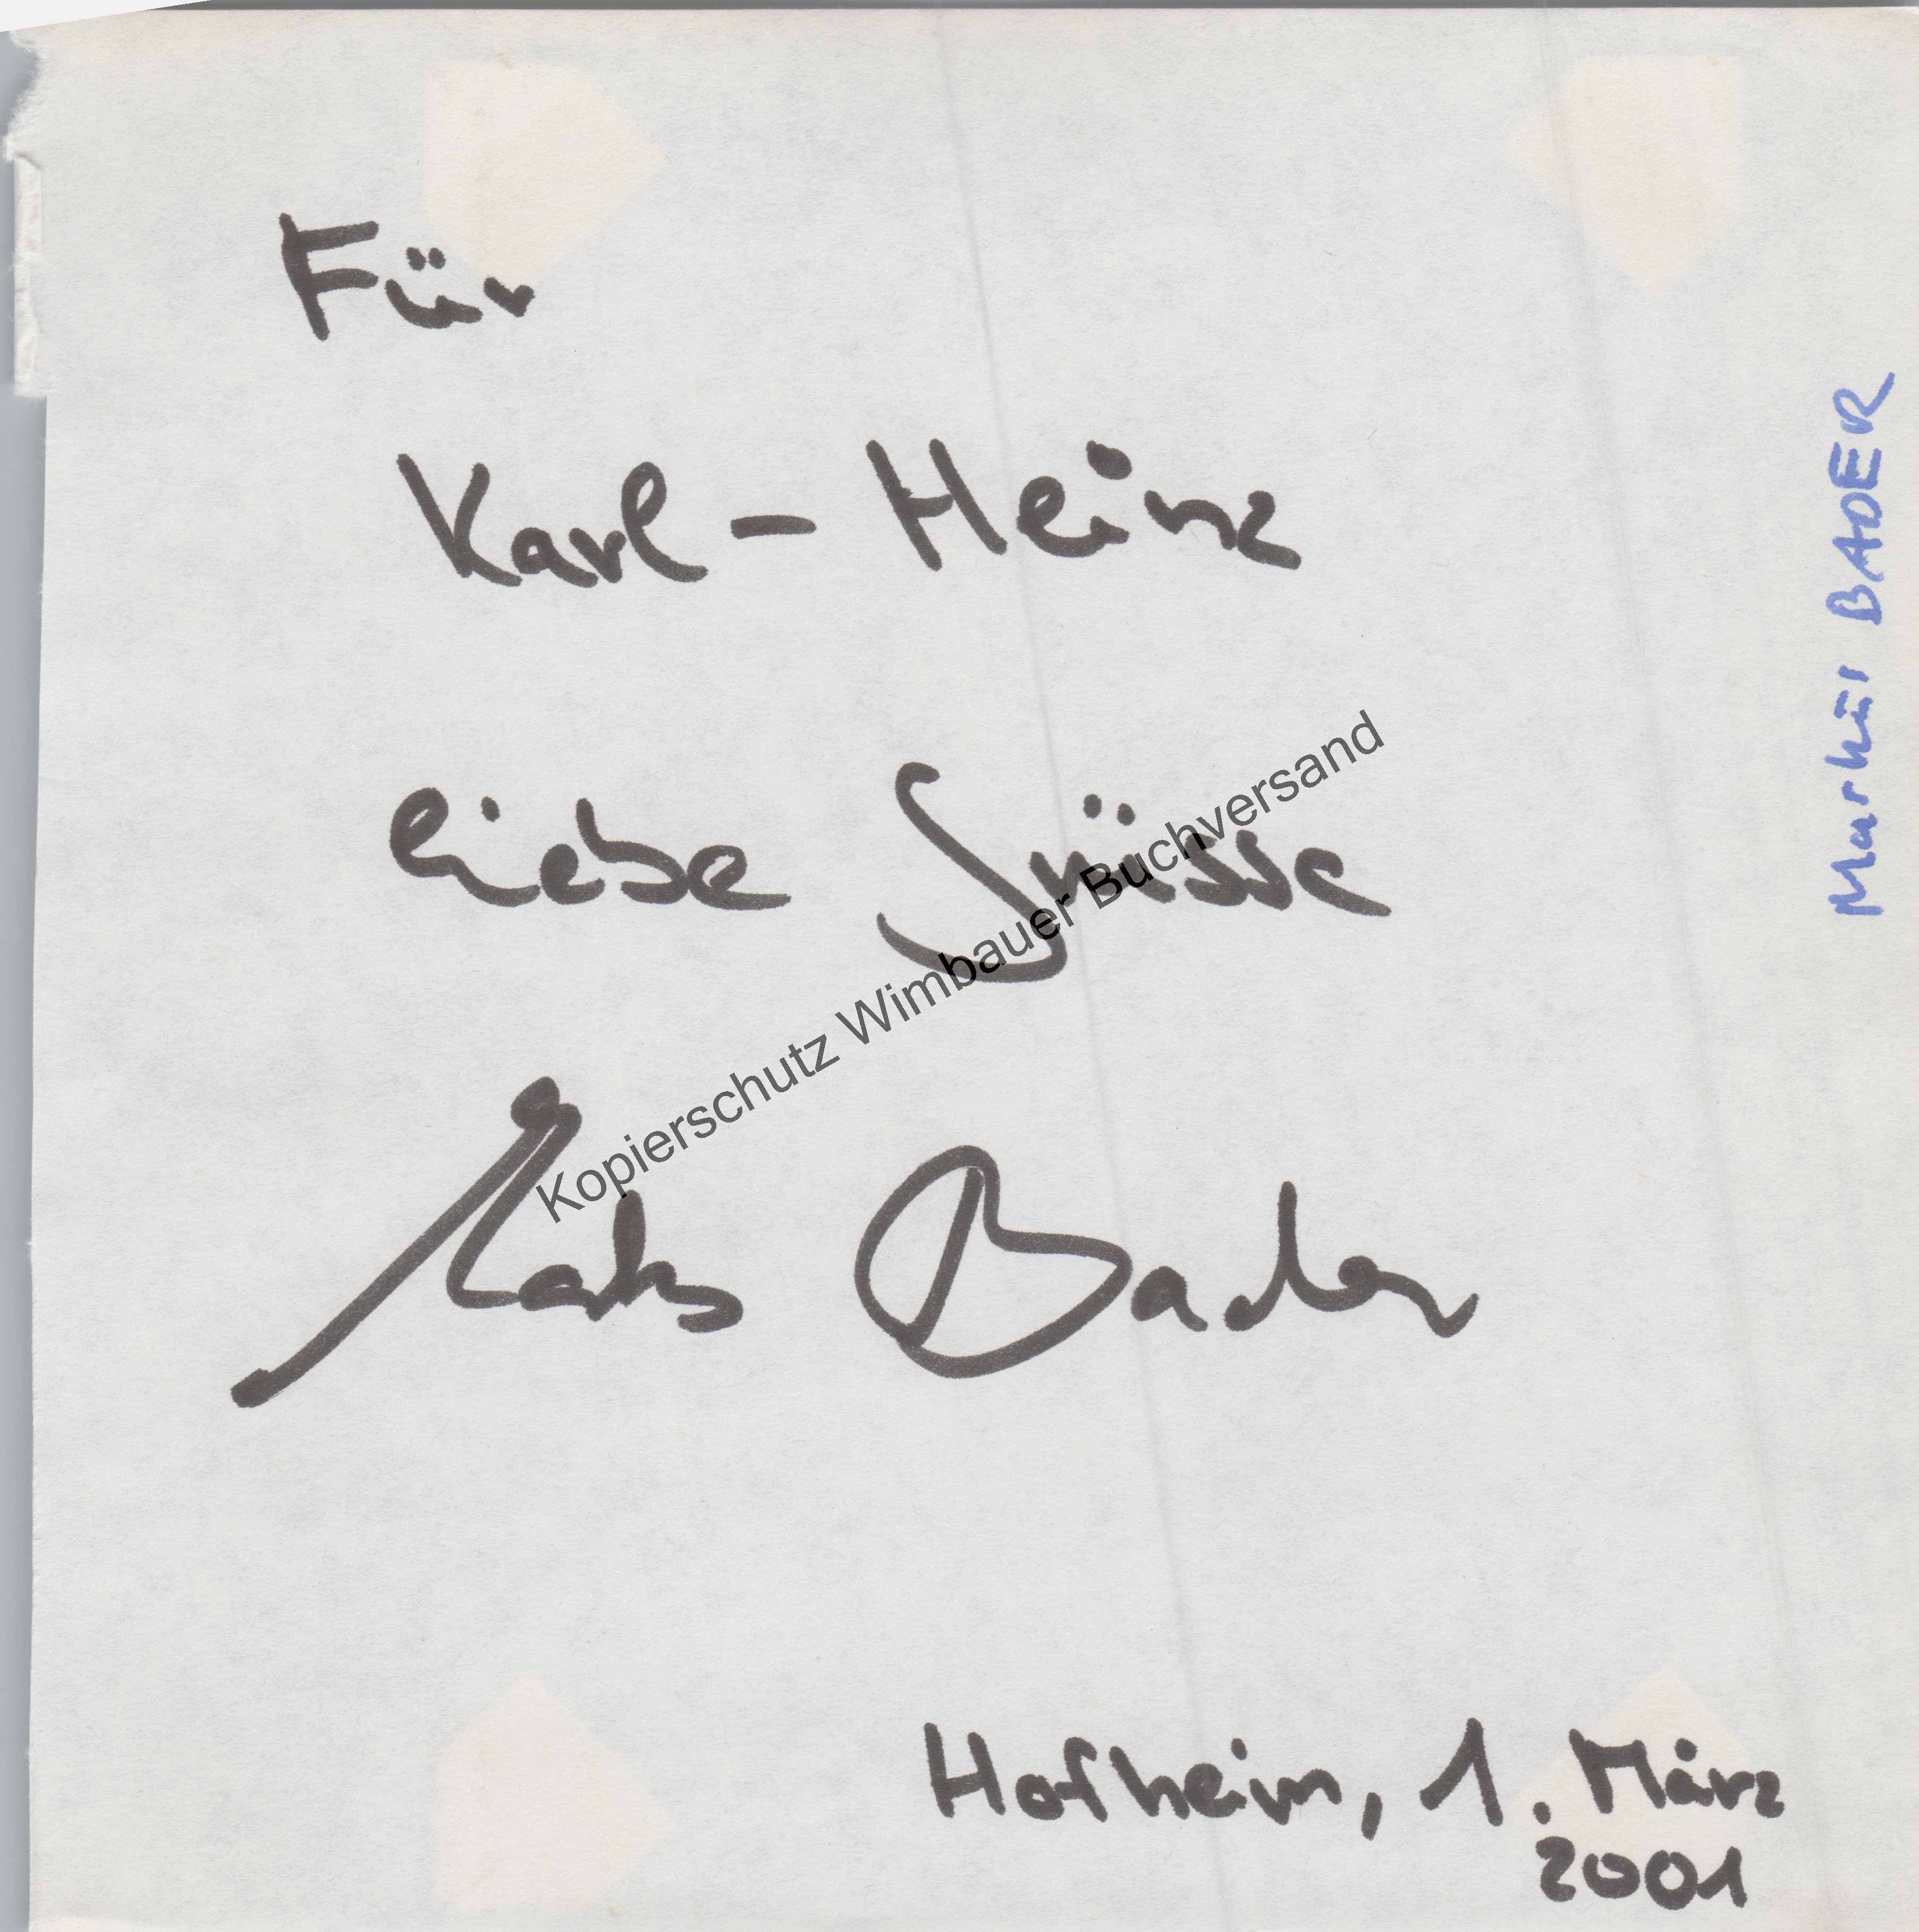 Für
Karl-Heinz
liebe Grüsse
Markus Bader
Hofheim, 1. März
2001
Markus BADER
Kopierschutz Wimbauer Buchversand